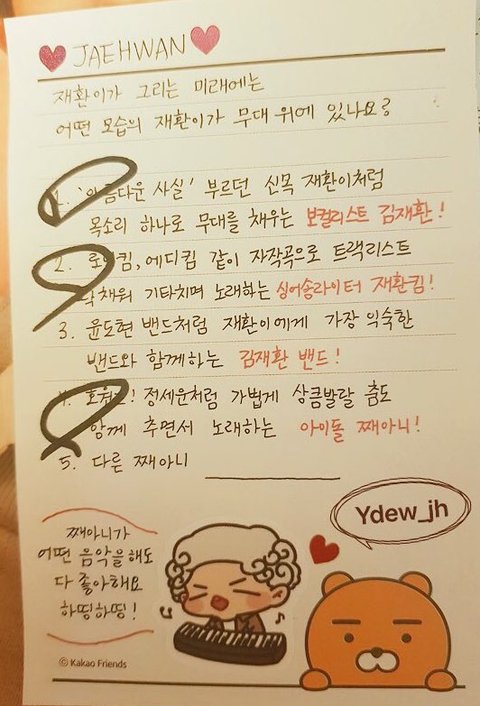 JAEHWAN
재환이가 그리는 미래에는
어떤 모습의 재환이가 무대 위에 있나요?
1. '아름다운 사실' 부르던 신목 재환이처럼
목소리 하나로 무대를 채우는 보컬리스트 김재환!
2. 로이킴, 에디킴 같이 자작곡으로 트랙리스트
싹 채워 기타치며 노래하는 싱어송라이터 재환킴!
3. 윤도현 밴드처럼 재환이에게 가장 익숙한
밴드와 함께하는 김재환 밴드!
4. ! 정세운처럼 가볍게 상큼발랄 춤도
함께 추면서 노래하는 아이돌 째아니!
5. 다른 째아니
Ydew_jh
째아니가
어떤 음악을 해도
다 좋아해요
하띵하띵!
© Kakao Friends